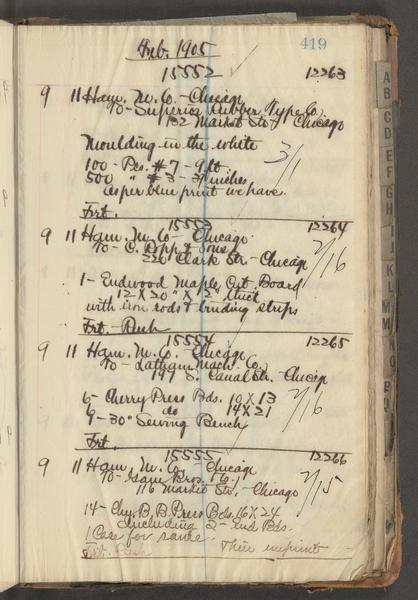 Feb. 1905
419
15552 12263
9 11 Ham. M. Co. - Chicago
To - Superior Rubber Type Co.
132 Market Str. Chicago
Moulding in the white
100 - Pcs. #7 - 9 ft.
3/1
500 " #3 - 3 inches
as per blue print we have.
Frt.
15553 12264
9 11 Ham. M. Co. - Chicago
To - C. & Sons
226 Clark Str. - Chicago
2/16
1 - Endwood Maple Cut. Board
12 X 20" X 2" thick
with iron rods & binding strips
Frt. Rush
15554 12265
9 11 Ham. M. Co. - Chicago
To - Latham Mach. Co.
197 S. Canal Str. - Chicago
6 - Cherry Press Bds. 10 X 13
6 - do 14 X 21
2/16
9 - 30" Sewing Bench
Frt.
15555 12266
9 11 Ham. M. Co. - Chicago
To - Gane Bros. & Co.
116 Market Str. - Chicago
2/15
14 - Chy. B. B. Press Bds. 16 X 24
Including 2 - End Bds.
1 Case for same.
Frt. Rush Their imprint
A
B
C
D
E
F
G
H
I
K
L
M
N
O